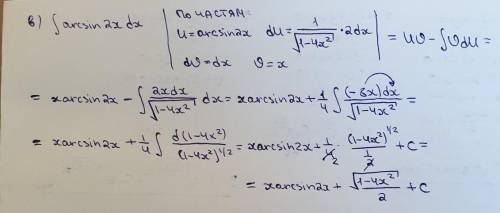 в) ∫ arcsin2x dx | по частям: u = arcsin2x du = 1/√(1-4x²) · 2dx dϑ = dx ϑ = x | = uϑ - ∫ϑdu =
= xarcsin2x - ∫ 2xdx/√(1-4x²) dx = xarcsin2x + 1/4 ∫ (-8x)dx/√(1-4x²) =
= xarcsin2x + 1/4 ∫ d(1-4x²)/(1-4x²)^1/2 = xarcsin2x + 1/4₂ · (1-4x²)^1/2 / (1/2) + C =
= xarcsin2x + √(1-4x²)/2 + C